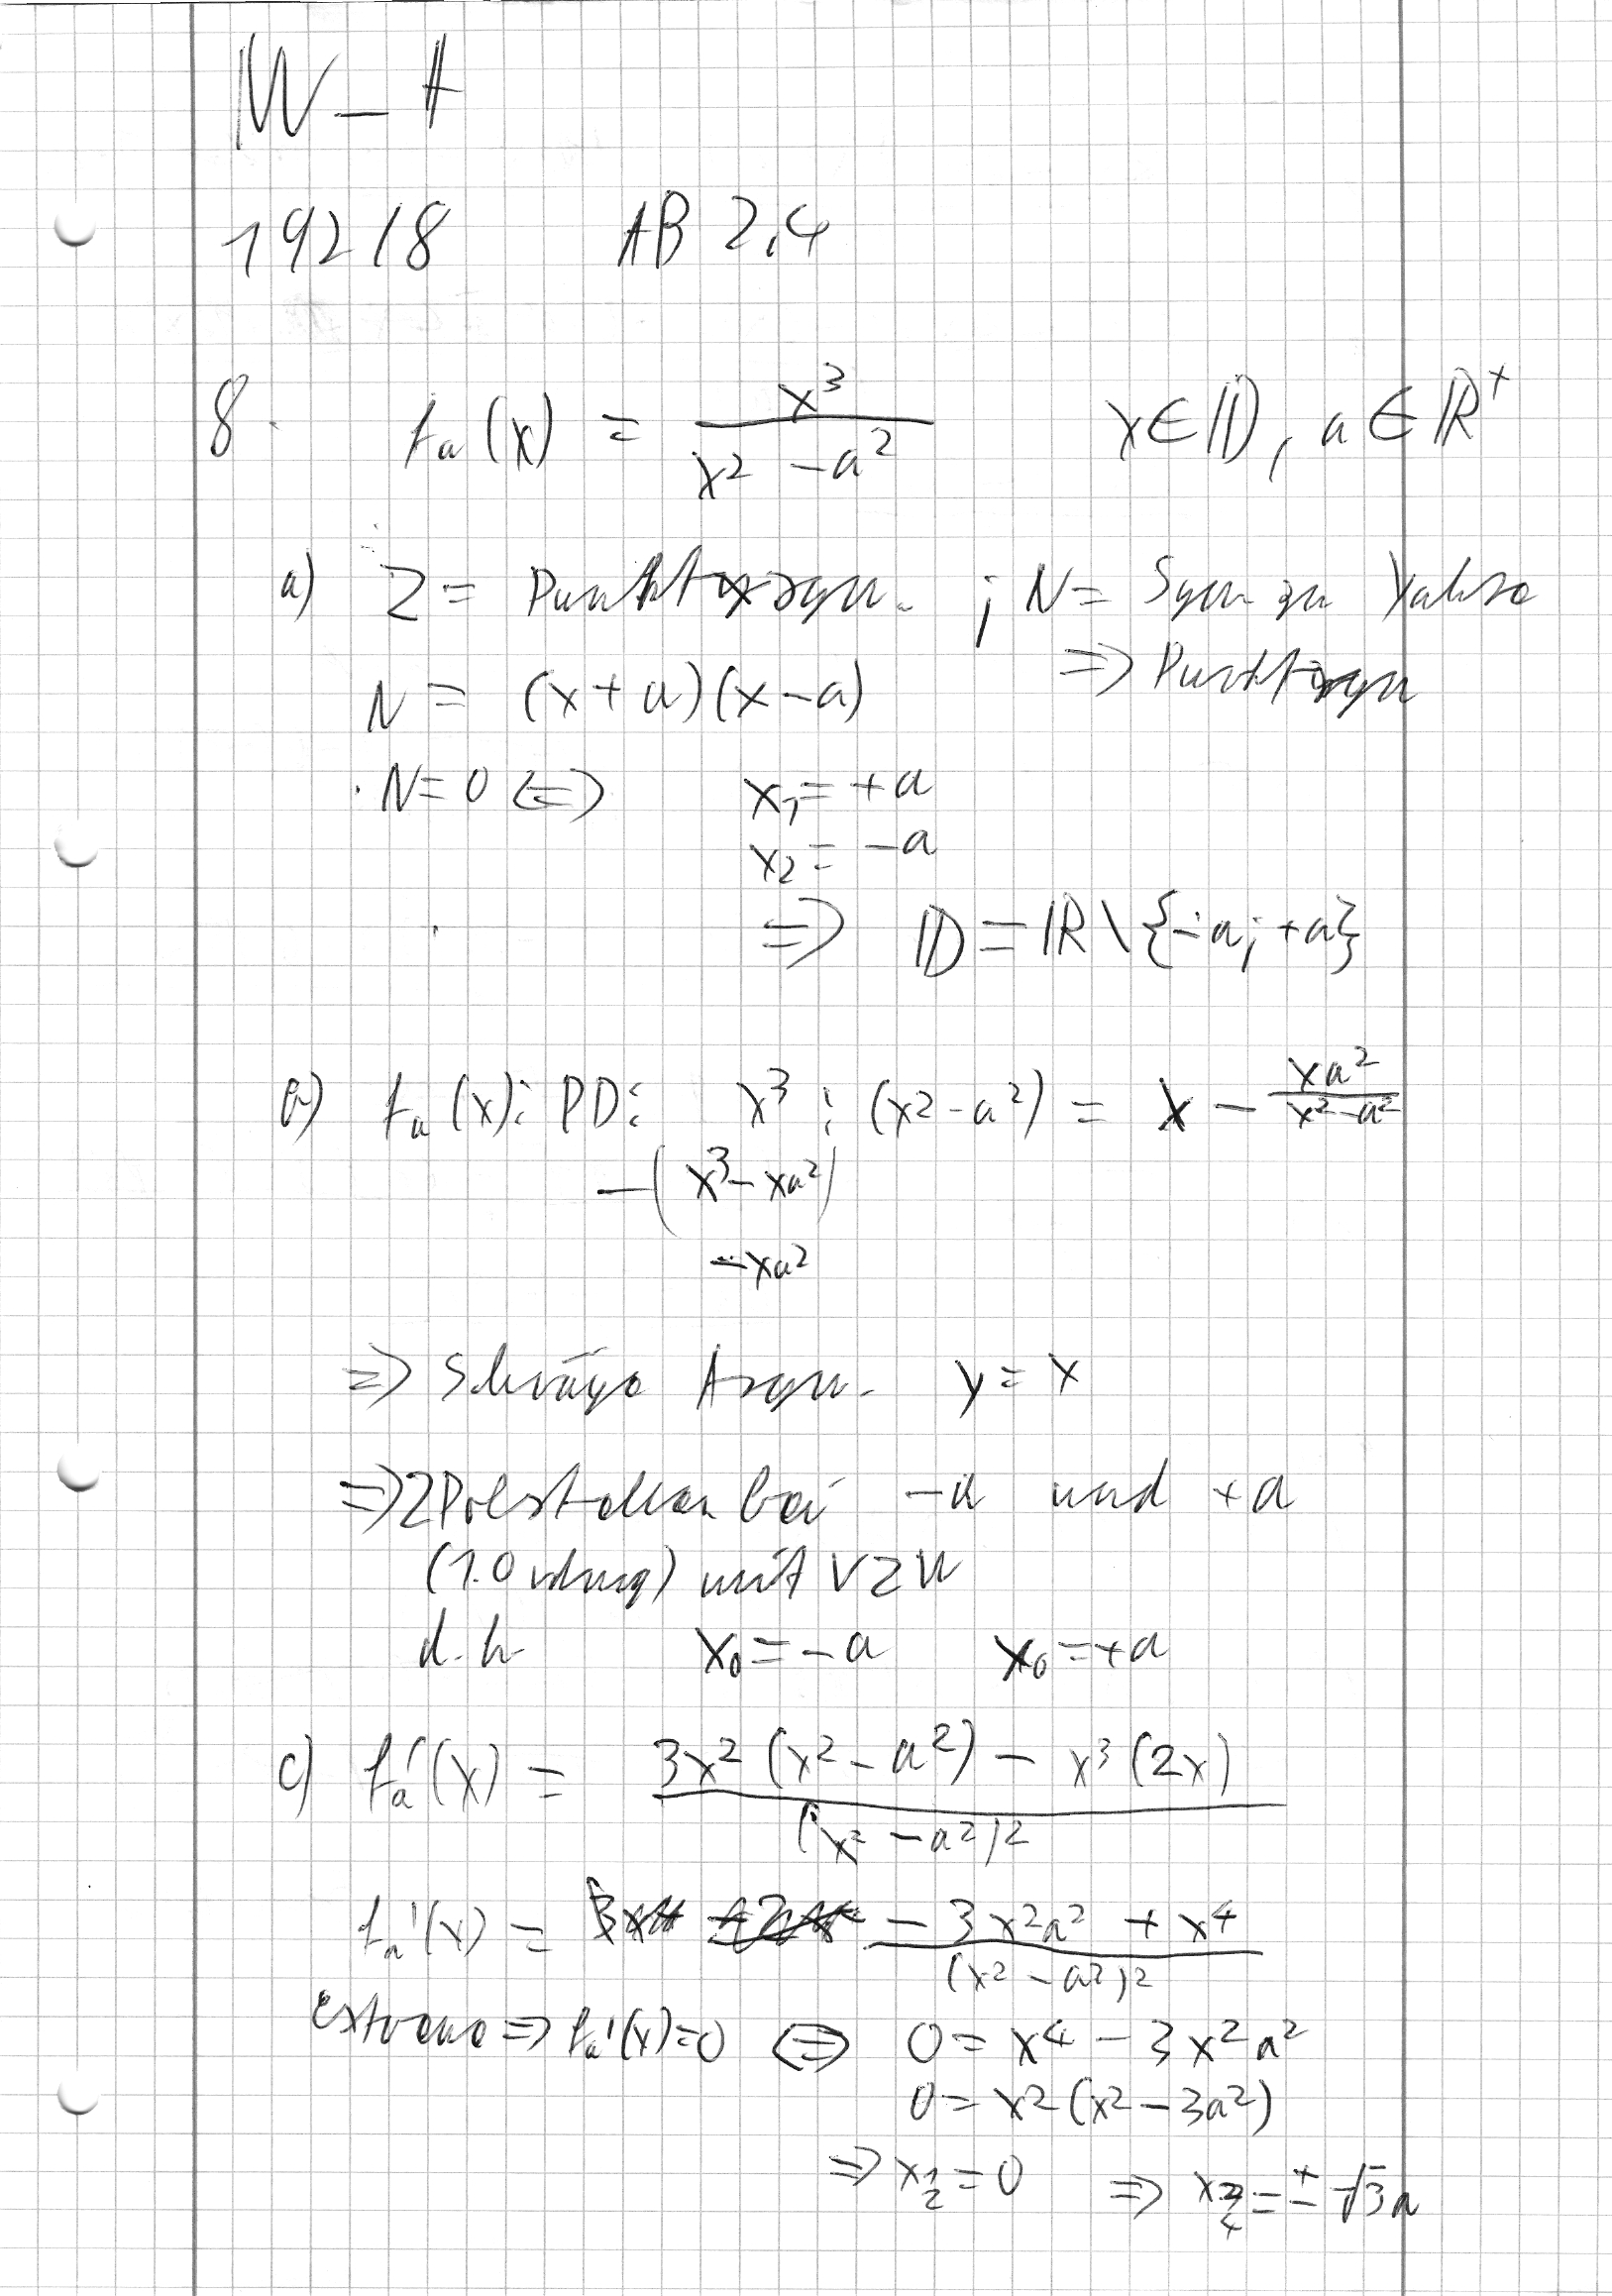 192/8 AB 2.4
8. fa(x) = x³ / (x² - a²) x∈ID, a∈IR⁺
a) Z = Punktsym. ; N = Sym. zu Yachse
⇒ Punktsym
N = (x+a)(x-a)
N=0 ⇔ x₁ = +a
x₂ = -a
⇒ ID = IR \ {-a; +a}
b) fa(x): PD: x³ : (x²-a²) = x - xa² / (x²-a²)
-(x³-xa²)
-xa²
⇒ Schräge Asym. y = x
⇒ 2 Polstellen bei -a und +a
(1. Ordnung) mit VZW
d.h. x₀ = -a x₀ = +a
c) fa'(x) = (3x²(x²-a²) - x³(2x)) / (x²-a²)²
fa'(x) = (-3x²a² + x⁴) / (x²-a²)²
Extrema ⇒ fa'(x)=0 ⇔ 0 = x⁴ - 3x²a²
0 = x²(x²-3a²)
⇒ x₁/₂ = 0 ⇒ x₃/₄ = ±√3a